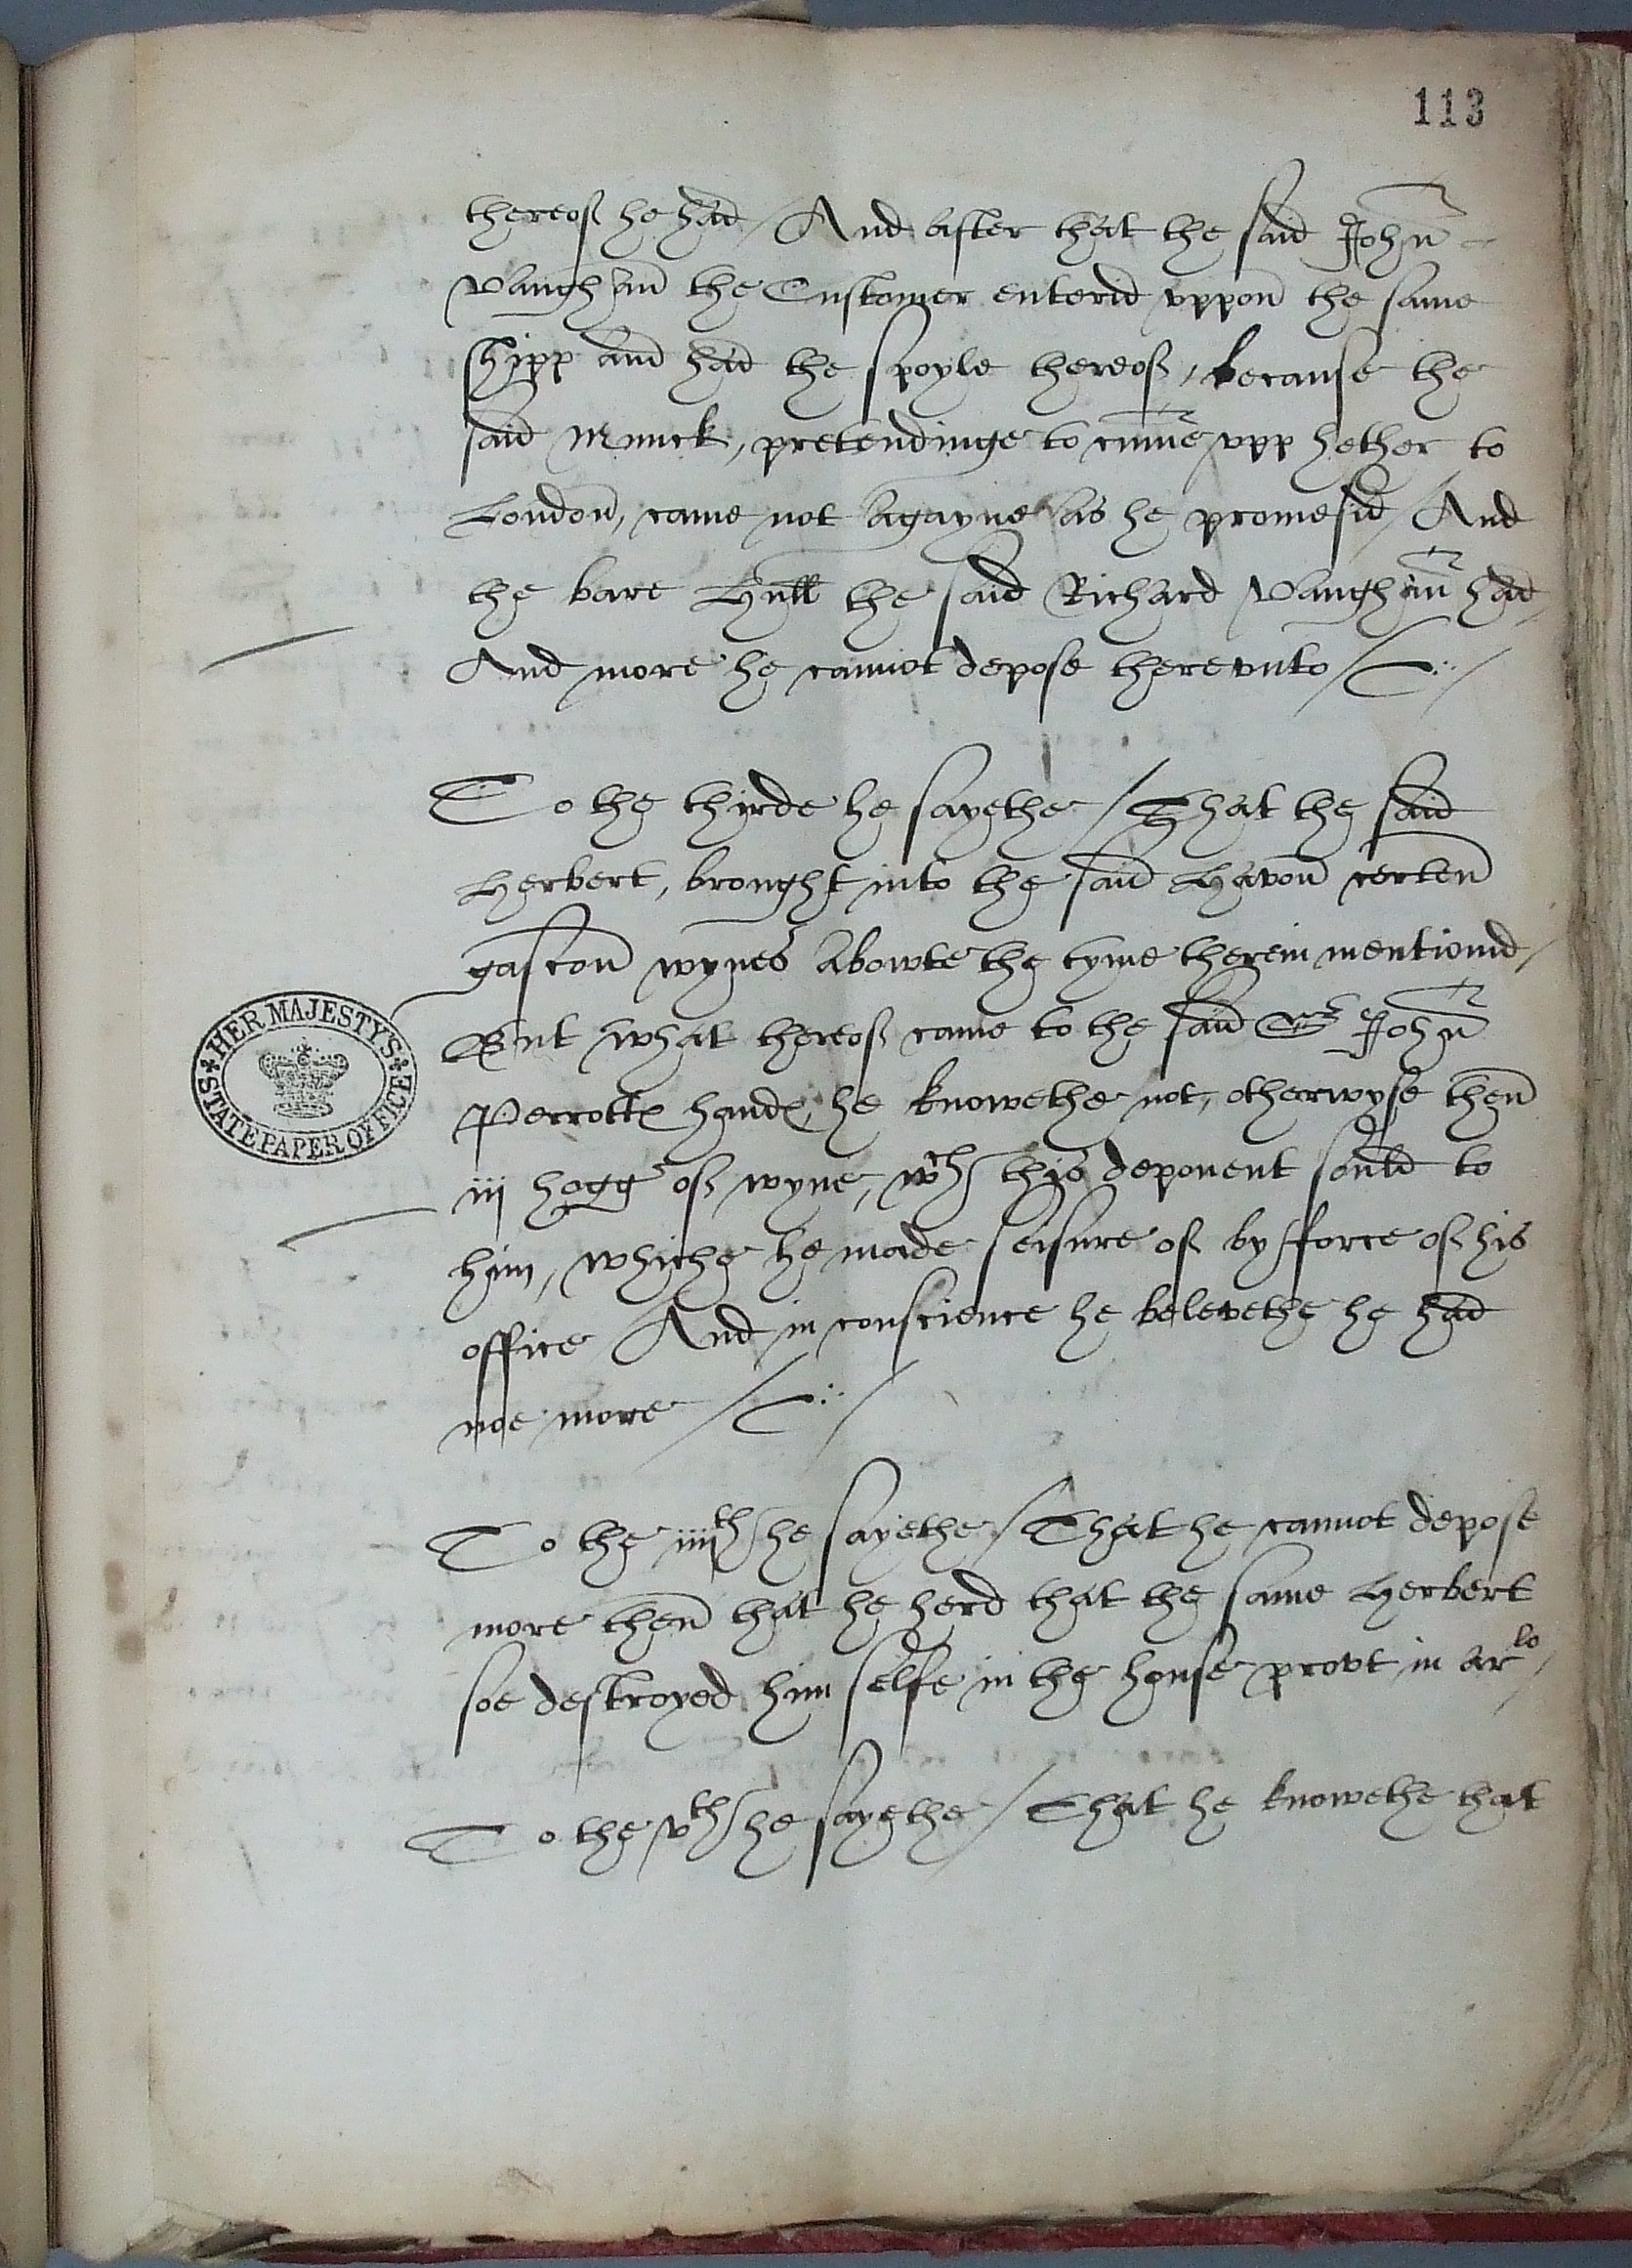 113
thereof he had / And after that the said John
Vaughan the Customer enterid vppon the same
shipp and had the spoyle thereof, because the
said Munck, pretendinge to cume vpp hether to
London, came not agayne as he promesid / And
the bare Hull the said Richard Vaughan had,
And more he cannot depose therevnto /
To the thyrde he sayethe / That the said
Herbert, brought into the said Havon certen
gascon wynes abowte the tyme therein mentionid /
But what thereof came to the said Sr John
Perrottes handes, he knowethe not, otherwyse then
iij hogg of wyne, wch this deponent sould to
him, whiche he made seisure of by fforce of his
office And in conscience he belevethe he had
noe more /
To the iiijth he sayethe / That he cannot depose
more then that he herd that the same Herbert
soe destroyed him selfe in the house prout in arlo /
To the vth he sayethe / That he knowethe that
HER MAJESTY'S
STATE PAPER OFFICE